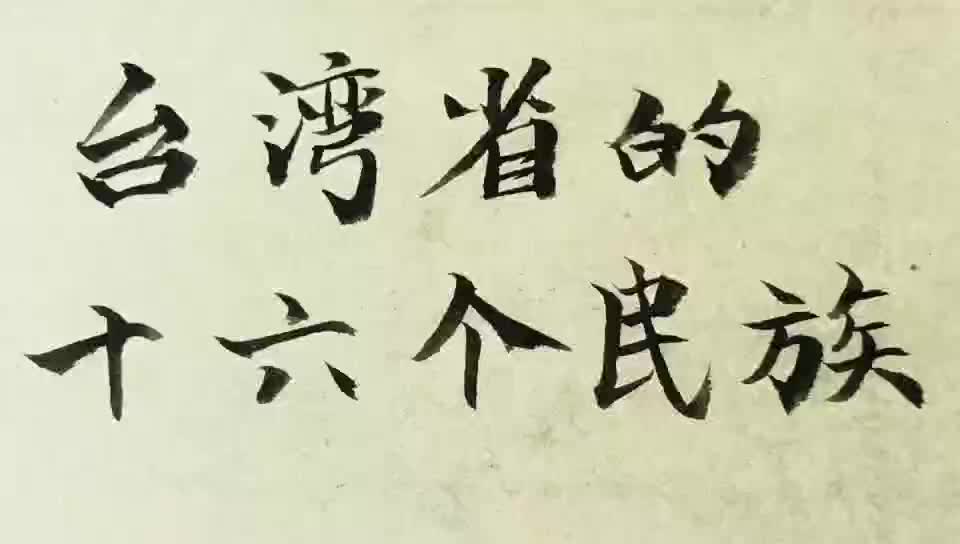 台湾省的
十六个民族